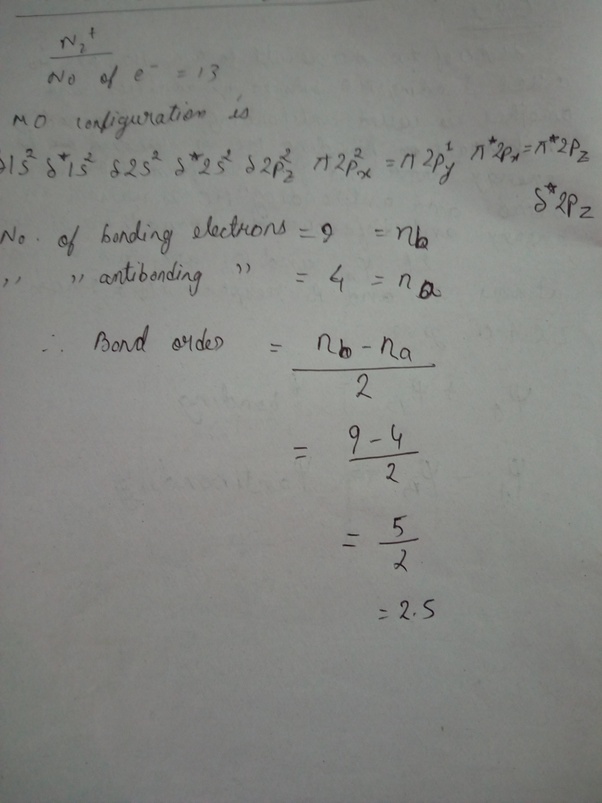 N₂⁺
No of e⁻ = 13
MO configuration is
δ1s² δ*1s² δ2s² δ*2s² δ2p_z² π2p_x² = π2p_y¹ π*2p_x = π*2p_z
δ*2p_z
No. of bonding electrons = 9 = n_b
,, ,, antibonding ,, = 4 = n_a
∴ Bond order = (n_b − n_a) / 2
= (9 − 4) / 2
= 5 / 2
= 2.5